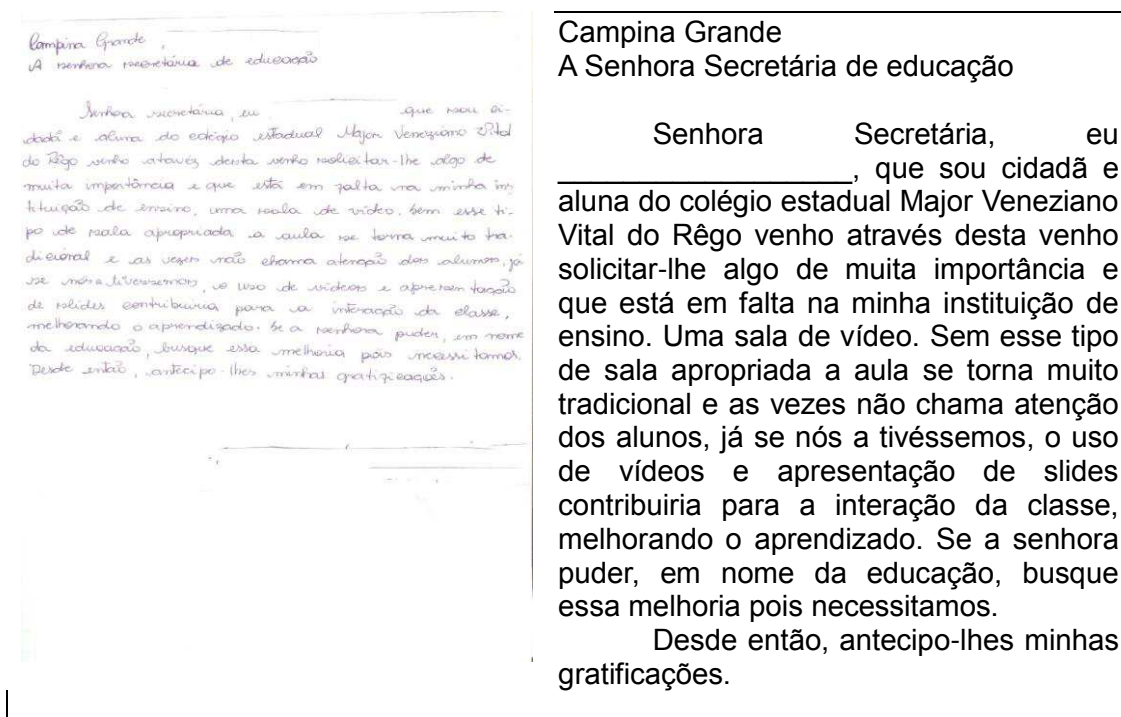 Campina Grande,
A senhora secretária de educação
Senhora secretária, eu que sou ci-
dadã e aluna do colégio estadual Major Veneziano Vital
do Rêgo venho através desta venho solicitar-lhe algo de
muita importância e que está em falta na minha ins
tituição de ensino, uma sala de vídeo. Sem esse ti-
po de sala apropriada a aula se torna muito tra-
dicional e as vezes não chama atenção dos alunos, já
se nós a tivessemos, o uso de vídeos e apresentação
de slides contribuiria para a interação da classe,
melhorando o aprendizado. Se a senhora puder, em nome
da educação, busque essa melhoria pois necessitamos.
Desde então, antecipo-lhes minhas gratificações.
Campina Grande
A Senhora Secretária de educação
Senhora Secretária, eu
__________________, que sou cidadã e
aluna do colégio estadual Major Veneziano
Vital do Rêgo venho através desta venho
solicitar-lhe algo de muita importância e
que está em falta na minha instituição de
ensino. Uma sala de vídeo. Sem esse tipo
de sala apropriada a aula se torna muito
tradicional e as vezes não chama atenção
dos alunos, já se nós a tivéssemos, o uso
de vídeos e apresentação de slides
contribuiria para a interação da classe,
melhorando o aprendizado. Se a senhora
puder, em nome da educação, busque
essa melhoria pois necessitamos.
Desde então, antecipo-lhes minhas
gratificações.